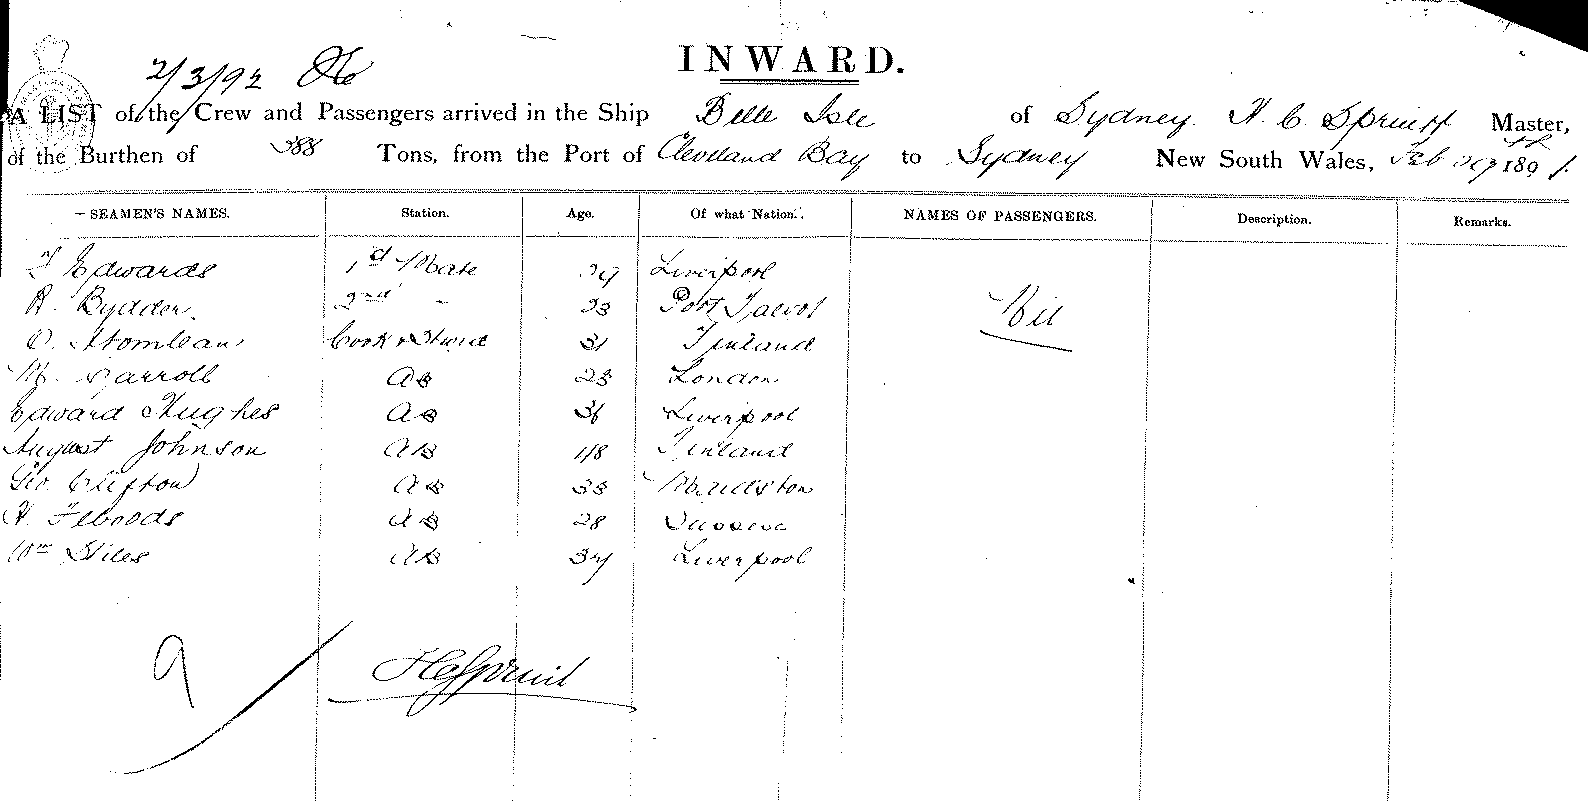 INWARD.
2/3/92
A LIST of the Crew and Passengers arrived in the Ship Belle Isle of Sydney. H. C. Spruit Master,
of the Burthen of 388 Tons, from the Port of Cleveland Bay to Sydney New South Wales, Feb 189
SEAMEN'S NAMES. Station. Age. Of what Nation. NAMES OF PASSENGERS. Description. Remarks.
Edwards 1st Mate 29 Liverpool
R. Bydder. 2nd - 33 Port Talbot Nil
Cook & Stwrd 31 Finland
M. Carroll AB 23 London
Edward Hughes AB 36 Liverpool
August Johnson AB 48 Finland
Geo. Clifton AB 33 Maidston
H. AB 28 Sussex
Wm Stiles AB 34 Liverpool
9 HCSpruit